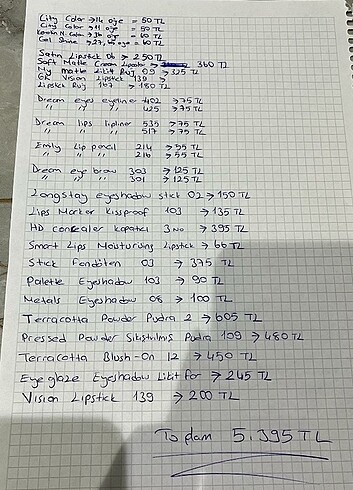 City Color → 14 öge = 50 TL
City Color → 11 öge = 50 TL
N. Color → 36 öge = 60 TL
Gel → 27, öge = 60 TL
Satin Lipstick 06 → 250 TL
Soft Matte Cream Lipcolor → 360 TL
My matte Likit Ruj 09 → 325 TL
Vision Lipstick 139 →
Lipstick Ruj 167 → 180 TL
Dream eyes eyeliner 402 → 75 TL
" " " 425 → 75 TL
Dream lips lipliner 535 → 75 TL
" " " 517 → 75 TL
Emily Lip pencil 214 → 55 TL
" " " 216 → 55 TL
Dream eye brow 303 → 125 TL
" " " 301 → 125 TL
Longstay eyeshadow stick 02 → 150 TL
Lips Marker Kissproof 103 → 135 TL
HD concealer kapatıcı 3 No → 395 TL
Smart Lips Moisturising Lipstick → 60 TL
Stick Fondöten 03 → 375 TL
Palette Eyeshadow 103 → 90 TL
Metals Eyeshadow 08 → 100 TL
Terracotta Powder Pudra 2 → 605 TL
Pressed Powder Sıkıştılmış Pudra 109 → 480 TL
Terracotta Blush-On 12 → 450 TL
Eye glaze Eyeshadow Likit far → 245 TL
Vision Lipstick 139 → 200 TL
Toplam 5.395 TL